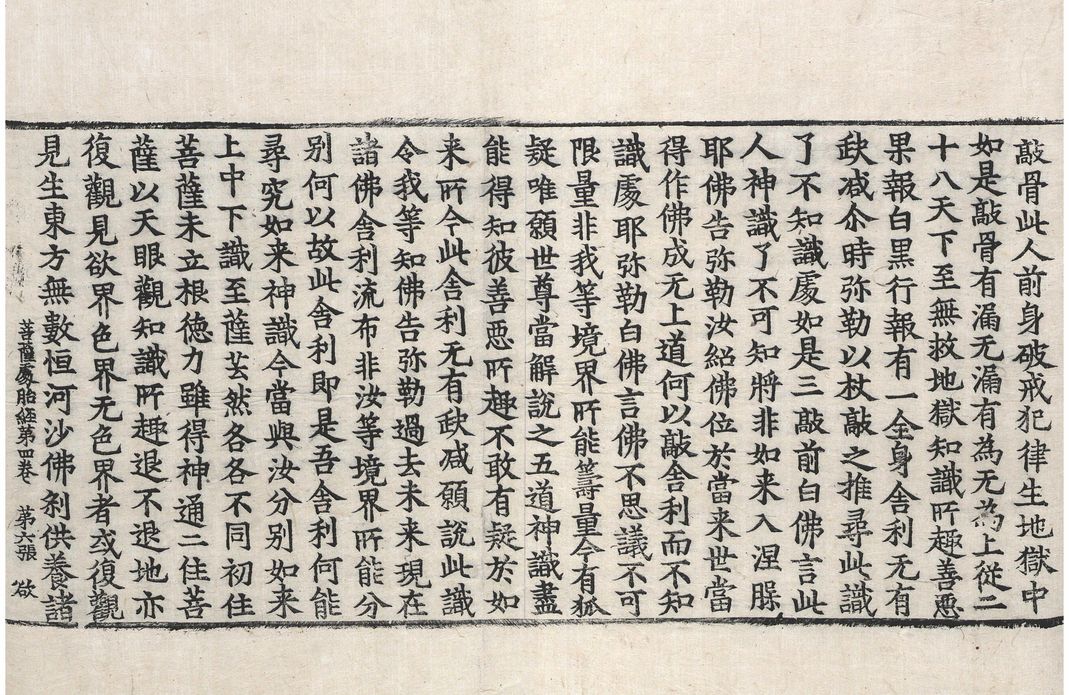 敲骨此人前身破戒犯律生地獄中
如是敲骨有漏无漏有為无為上從二
十八天下至無救地獄知識所趣善惡
果報白黑行報有一全身舍利无有
缺减尒時弥勒以杖敲之推尋此識
了不知識處如是三敲前白佛言此
人神識了不可知將非如来入涅槃
耶佛告弥勒汝紹佛位於當来世當
得作佛成无上道何以敲舍利而不知
識處耶弥勒白佛言佛不思議不可
限量非我等境界所能籌量今有狐
疑唯願世尊當解說之五道神識盡
能得知彼善惡所趣不敢有疑於如
来所今此舍利无有缺减願說此識
令我等知佛告弥勒過去未来現在
諸佛舍利流布非汝等境界所能分
別何以故此舍利即是吾舍利何能
尋究如来神識今當與汝分別如来
上中下識至薩芸然各各不同初住
菩薩未立根德力雖得神通二住菩
薩以天眼觀知識所趣退不退地亦
復觀見欲界色界无色界者或復觀
見生東方無數恒河沙佛剎供養諸
菩薩處胎經第四卷 第六張 欲